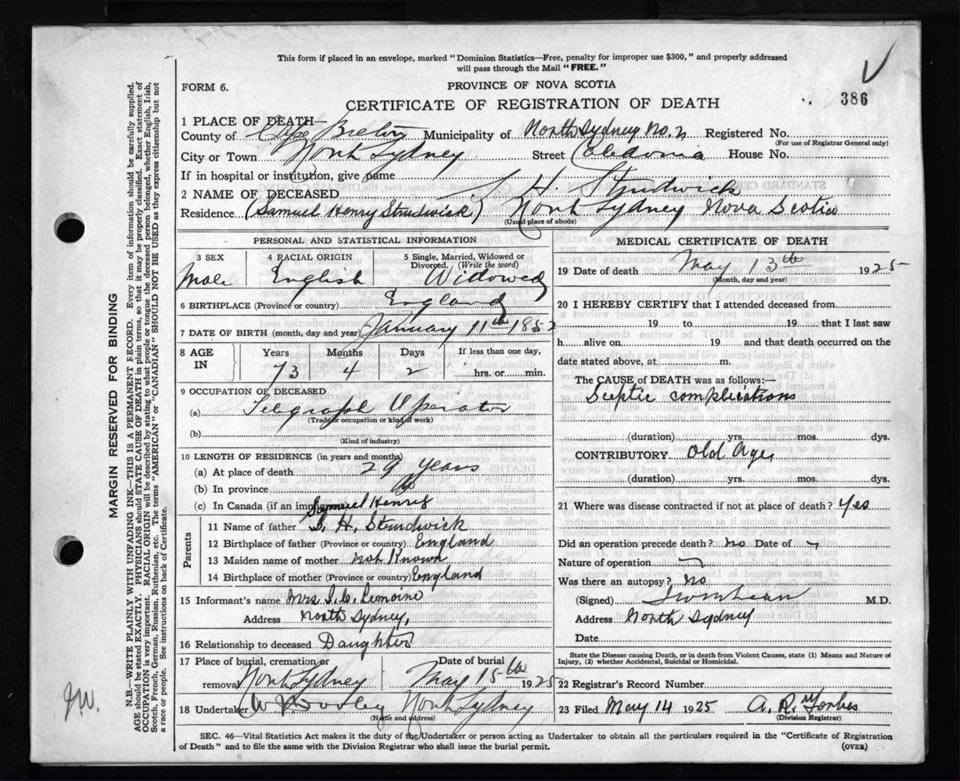 This form if placed in an envelope, marked "Dominion Statistics—Free, penalty for improper use $300," and properly addressed
will pass through the Mail "FREE."
FORM 6.
PROVINCE OF NOVA SCOTIA
CERTIFICATE OF REGISTRATION OF DEATH
386
1 PLACE OF DEATH—
County of Cape Breton Municipality of North Sydney No. 2 Registered No.
(For use of Registrar General only)
City or Town North Sydney Street Caledonia House No.
If in hospital or institution, give name
2 NAME OF DECEASED S. H. Strudwick
Residence (Samuel Henry Strudwick) North Sydney Nova Scotia
(Usual place of abode)
PERSONAL AND STATISTICAL INFORMATION
3 SEX
Male
4 RACIAL ORIGIN
English
5 Single, Married, Widowed or
Divorced. (Write the word)
Widowed
6 BIRTHPLACE (Province or country) England
7 DATE OF BIRTH (month, day and year) January 11th 1852
8 AGE
IN
Years
73
Months
4
Days
2
If less than one day,
hrs. or min.
9 OCCUPATION OF DECEASED
(a) Telegraph Operator
(Trade or occupation or kind of work)
(b)
(Kind of industry)
10 LENGTH OF RESIDENCE (in years and months)
(a) At place of death 29 Years
(b) In province
(c) In Canada (if an immigrant)
Parents
Samuel Henry
11 Name of father S. H. Strudwick
12 Birthplace of father (Province or country) England
13 Maiden name of mother not Known
14 Birthplace of mother (Province or country) England
15 Informant's name Mrs S. C. Lemoine
Address North Sydney,
16 Relationship to deceased Daughter
17 Place of burial, cremation or
removal North Sydney
Date of burial
May 15th 1925
18 Undertaker North Sydney
(Name and address)
MEDICAL CERTIFICATE OF DEATH
19 Date of death May 13th 1925
(Month, day and year)
20 I HEREBY CERTIFY that I attended deceased from
19 to 19 that I last saw
h alive on 19 and that death occurred on the
date stated above, at m.
The CAUSE OF DEATH was as follows:—
Sceptic complications
(duration) yrs. mos. dys.
CONTRIBUTORY Old Age,
(duration) yrs. mos. dys.
21 Where was disease contracted if not at place of death? Yes
Did an operation precede death? no Date of
Nature of operation
Was there an autopsy? No
(Signed) M.D.
Address North Sydney
Date
State the Disease causing Death, or in death from Violent Causes, state (1) Means and Nature of
Injury, (2) whether Accidental, Suicidal or Homicidal.
22 Registrar's Record Number
23 Filed May 14 1925 A. R. Forbes
(Division Registrar)
SEC. 46—Vital Statistics Act makes it the duty of the Undertaker or person acting as Undertaker to obtain all the particulars required in the "Certificate of Registration
of Death" and to file the same with the Division Registrar who shall issue the burial permit.
(OVER)
MARGIN RESERVED FOR BINDING
N.B.—WRITE PLAINLY WITH UNFADING INK—THIS IS A PERMANENT RECORD. Every item of information should be carefully supplied.
AGE should be stated EXACTLY. PHYSICIANS should STATE CAUSE OF DEATH in plain terms, so that it may be properly classified. Exact statement of
OCCUPATION is very important. RACIAL ORIGIN will be described by stating to what people or tongue the deceased person belonged, whether English, Irish,
Scotch, French, German, Russian, Ruthenian, etc. The terms "AMERICAN" or "CANADIAN" SHOULD NOT BE USED as they express citizenship but not
a race or people. See instructions on back of Certificate.